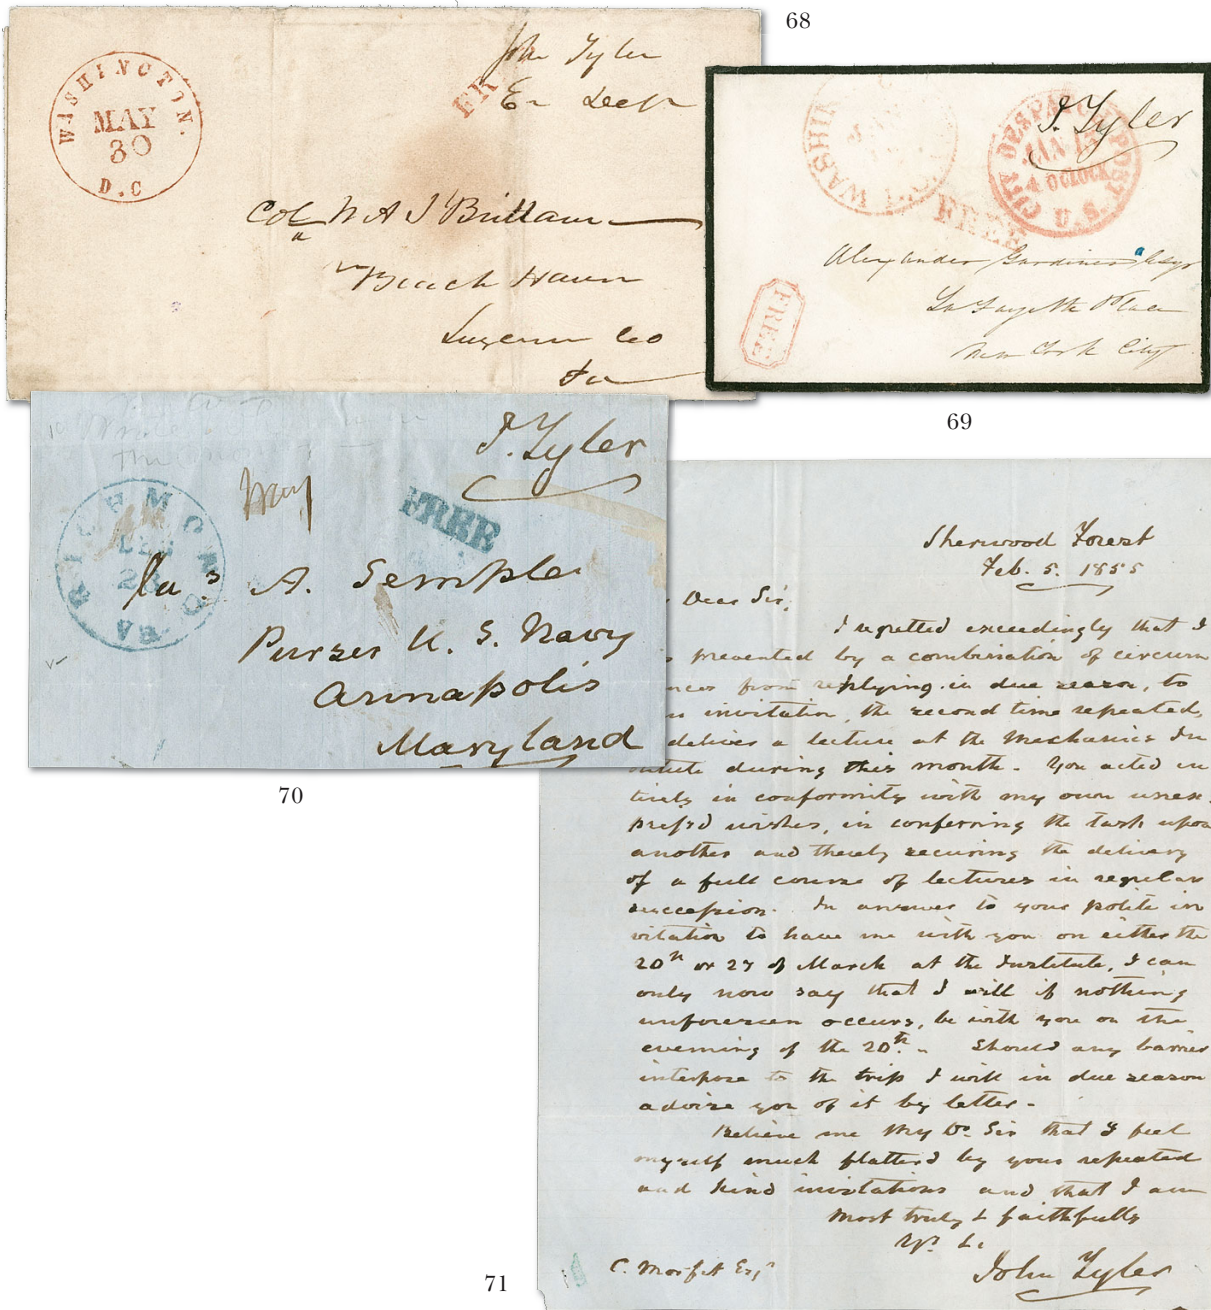 68
John Tyler
FR
Ex Dep
WASHINGTON.
MAY
30
D.C
Col W A J Brittain
Beach Haven
Luzerne Co
Pa
J. Tyler
CITY DESPATCH POST
JAN 13
4 O'CLOCK
U.S.
WASHIN
D.C.
FREE
Alexander Gardiner Esqr
La Fayette Place
New York City
FREE
69
J. Tyler
Way
FREE
RICHMOND
DEC
Va.
Ja.s A. Semple
Purser U. S. Navy
Annapolis
Maryland
70
Sherwood Forest
Feb. 5. 1855
Dear Sir,
I regretted exceedingly that I
prevented by a combination of circum
nces from replying in due season, to
invitation, the second time repeated,
deliver a lecture at the Mechanics In
titute during this month. You acted en
tirely in conformity with my own unex-
press'd wishes, in conferring the task upon
another and thereby securing the delivery
of a full course of lectures in regular
succession. In answer to your polite in
vitation to have me with you on either the
20th or 27 of March at the Institute, I can
only now say that I will if nothing
unforeseen occurs, be with you on the
evening of the 20th. Should any barrier
interpose to the trip I will in due season
advise you of it by letter.
Believe me My Dr. Sir that I feel
myself much flatter'd by your repeated
and kind invitations and that I am
most truly & faithfully
Yrs. &c
John Tyler
C. Morfit Esqr
71